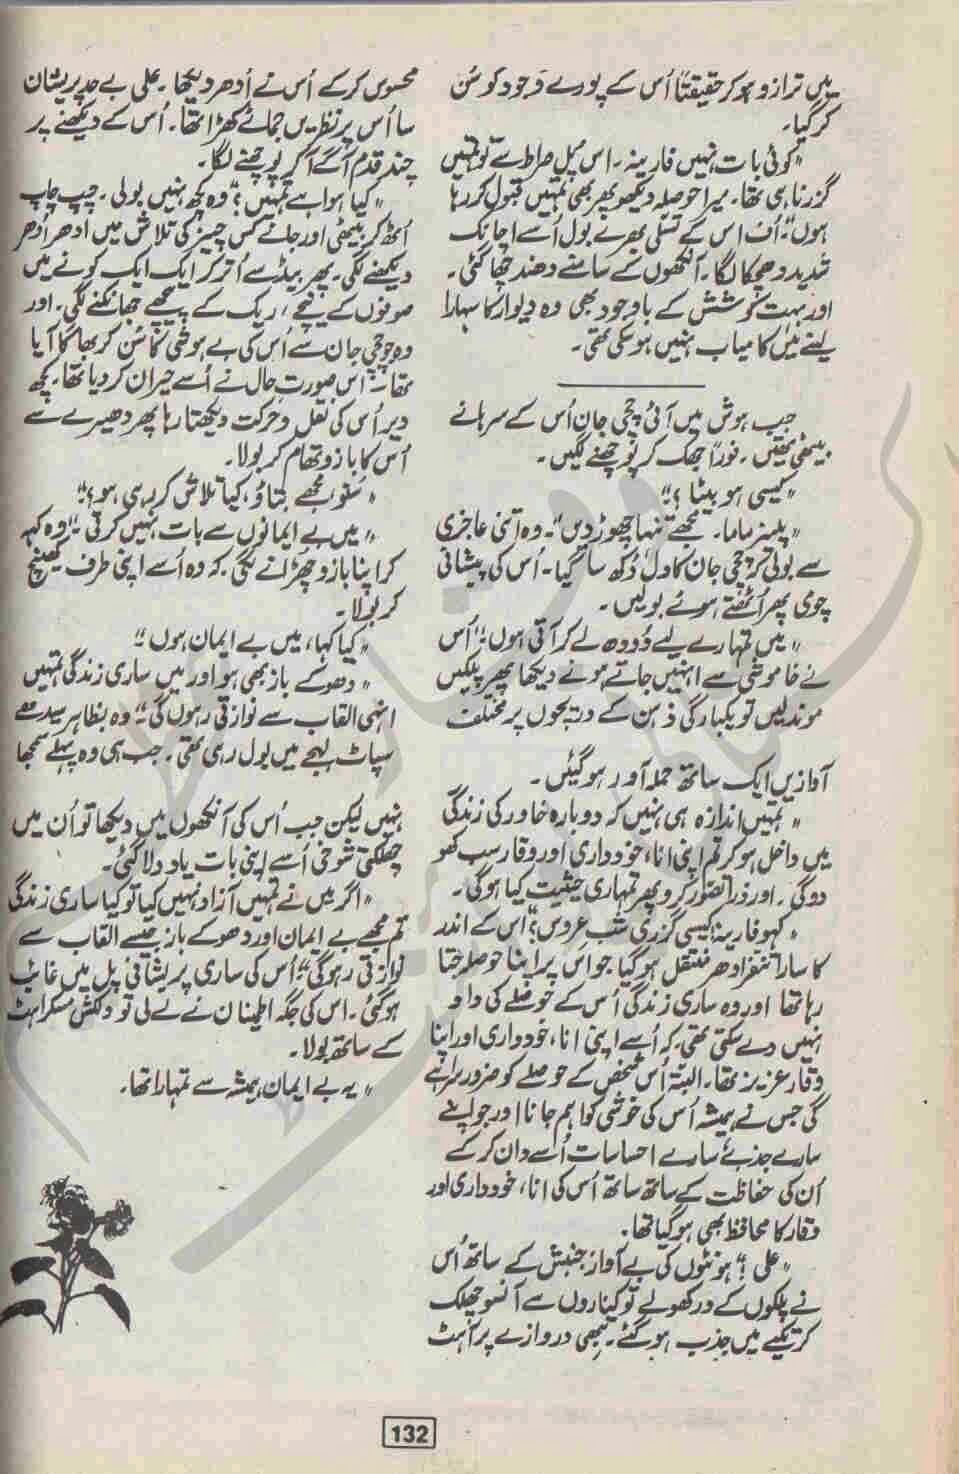 میں ترازو ہو کر حقیقتاً اُس کے پورے وجود کو سُن
کر گیا۔
”کوئی بات نہیں فارینہ۔ اس پل صراط سے تو تمہیں
گزرنا ہی تھا۔ میرا حوصلہ دیکھو پھر بھی تمہیں قبول کر رہا
ہوں“۔ اُف اس کے تسلی بھرے بول اُسے اچانک
شدید دھچکا لگا۔ آنکھوں کے سامنے دھند چھا گئی۔
اور بہت کوشش کے باوجود بھی وہ دیوار کا سہارا
لینے میں کامیاب نہیں ہو سکی تھی۔
جب ہوش میں آئی چچی جان اُس کے سرہانے
بیٹھی تھیں۔ فوراً جھک کر پوچھنے لگیں۔
”کیسی ہو بیٹا؟“
”پلیز ماما۔ مجھے تنہا چھوڑ دیں“۔ وہ اتنی عاجزی
سے بولی کہ چچی جان کا دل دُکھ سا گیا۔ اُس کی پیشانی
چومی پھر اُٹھتے ہوئے بولیں۔
”میں تمہارے لیے دودھ لے کر آتی ہوں“۔ اُس
نے خاموشی سے انہیں جاتے ہوئے دیکھا پھر پلکیں
موند لیں تو یکبارگی ذہن کے دریچوں پر مختلف
آوازیں ایک ساتھ حملہ آور ہو گئیں۔
”تمہیں اندازہ ہی نہیں کہ دوبارہ خاور کی زندگی
میں داخل ہو کر تم اپنی انا، خودداری اور وقار سب کھو
دو گی۔ اور ذرا تصور کرو پھر تمہاری حیثیت کیا ہو گی۔
”کہو فارینہ کیسی گزری شبِ عروس؟“ اس کے اندر
کا سارا تنفر ادھر منتقل ہو گیا جو اس پر اپنا حوصلہ جتا
رہا تھا اور وہ ساری زندگی اُس کے حوصلے کی داد
نہیں دے سکتی تھی کہ اُسے اپنی انا، خودداری اور اپنا
وقار عزیز تھا۔ البتہ اُس شخص کے حوصلے کو ضرور سراہے
گی جس نے ہمیشہ اُس کی خوشی کو اہم جانا اور جو اپنے
سارے جذبے سارے احساسات اُسے دان کر کے
اُن کی حفاظت کے ساتھ ساتھ اُس کی انا، خودداری اور
وقار کا محافظ بھی ہو گیا تھا۔
”علی!“ ہونٹوں کی بے آواز جنبش کے ساتھ اُس
نے پلکوں کے در کھولے تو کناروں سے آنسو چھلک
کر تکیے میں جذب ہو گئے۔ تبھی دروازے پر آہٹ
محسوس کر کے اُس نے اُدھر دیکھا۔ علی بے حد پریشان
سا اُس پر نظریں جمائے کھڑا تھا۔ اُس کے دیکھنے پر
چند قدم آگے آ کر پوچھنے لگا۔
”کیا ہوا ہے تمہیں؟“ وہ کچھ نہیں بولی۔ چپ چاپ
اُٹھ کر بیٹھی اور جانے کس چیز کی تلاش میں ادھر اُدھر
دیکھنے لگی۔ پھر بیڈ سے اُتر کر ایک ایک کونے میں
صوفوں کے نیچے، ریک کے پیچھے جھانکنے لگی۔ اور
وہ جو چچی جان سے اُس کی بے ہوشی کا سن کر بھاگا آیا
تھا۔ اس صورت حال نے اُسے حیران کر دیا تھا۔ کچھ
دیر اُس کی نقل و حرکت دیکھتا رہا پھر دھیرے سے
اُس کا بازو تھام کر بولا۔
”سنو مجھے بتاؤ، کیا تلاش کر رہی ہو؟“
”میں بے ایمانوں سے بات نہیں کرتی“۔ وہ کہہ
کر اپنا بازو چھڑانے لگی کہ وہ اُسے اپنی طرف کھینچ
کر بولا۔
”کیا کہا، میں بے ایمان ہوں“
”دھوکے باز بھی ہو اور میں ساری زندگی تمہیں
انہی القاب سے نوازتی رہوں گی“۔ وہ بظاہر سیدھے
سپاٹ لہجے میں بول رہی تھی۔ جب ہی وہ پہلے سمجھا
نہیں لیکن جب اُس کی آنکھوں میں دیکھا تو اُن میں
چھلکتی شوخی اُسے اپنی بات یاد دلا گئی۔
”اگر میں نے تمہیں آزاد نہیں کیا تو کیا ساری زندگی
تم مجھے بے ایمان اور دھوکے باز جیسے القاب سے
نوازتی رہو گی“؛ اُس کی ساری پریشانی پل میں غائب
ہو گئی۔ اس کی جگہ اطمینان نے لے لی تو دلکش مسکراہٹ
کے ساتھ بولا۔
”یہ بے ایمان ہمیشہ سے تمہارا تھا۔
132